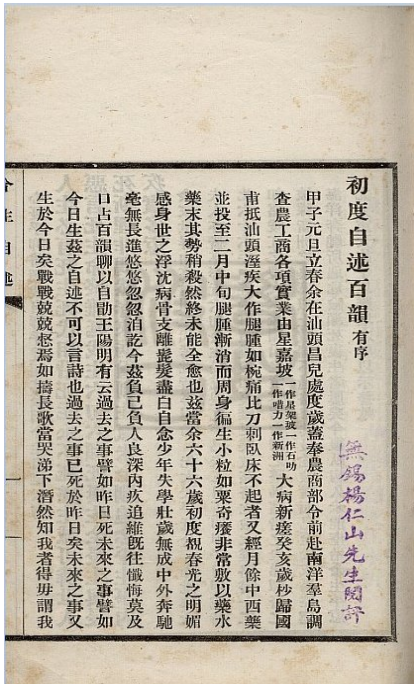 初度自述百韻 有序
無錫楊仁山先生閱評
甲子元旦立春余在汕頭昌兒處度歲蓋奉農商部令前赴南洋羣島調
查農工商各項實業由星嘉坡一作星架坡一作石叻一作嗜力一作新洲大病新瘥癸亥歲杪歸國
甫抵汕頭溼疾大作腿腫如椀痛比刀刺臥床不起者又經月餘中西藥
並投至二月中旬腿腫漸消而周身徧生小粒如粟奇癢非常敷以藥水
藥末其勢稍殺然終未能全愈也茲當余六十六歲初度覩春光之明媚
感身世之浮沈病骨支離髭髮盡白自念少年失學壯歲無成中外奔馳
毫無長進悠悠忽忽泊訖今茲負己負人良深內疚追維既往懺悔莫及
口占百韻聊以自勖王陽明有云過去之事譬如昨日死未來之事譬如
今日生茲之自述不可以言詩也過去之事已死於昨日矣未來之事又
生於今日矣戰戰兢兢惄焉如擣長歌當哭涕下潸然知我者得毋謂我
今生自述